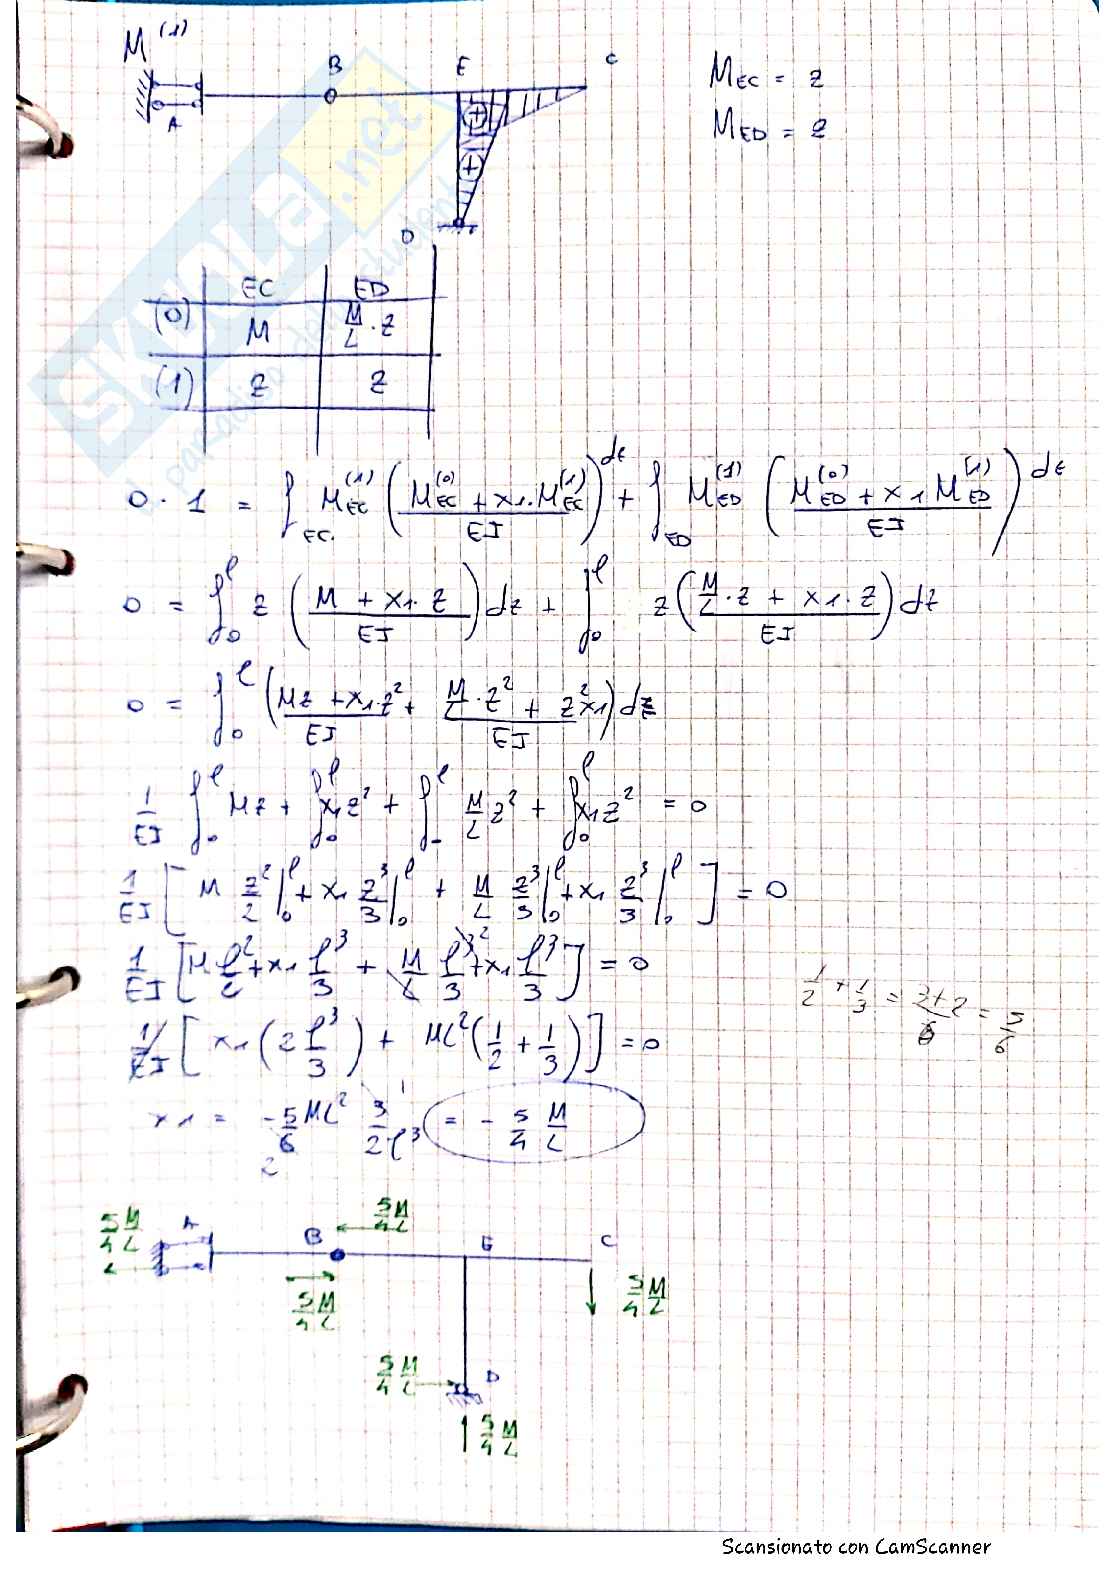 M^(1)
B E C
A
D
M_EC = z
M_ED = z
EC ED
(0) M M/L · z
(1) z z
0 · 1 = ∫_EC M_EC^(1) ( (M_EC^(0) + x1 · M_EC^(1)) / EJ ) dz + ∫_ED M_ED^(1) ( (M_ED^(0) + x1 M_ED^(1)) / EJ ) dz
0 = ∫_0^l z ( (M + x1 · z) / EJ ) dz + ∫_0^l z ( (M/L · z + x1 · z) / EJ ) dz
0 = ∫_0^l ( (Mz + x1 · z²) / EJ + (M/L · z² + z² x1) / EJ ) dz
1/EJ ∫_0^l Mz + ∫_0^l x1 z² + ∫_0^l M/L z² + ∫_0^l x1 z² = 0
1/EJ [ M z²/2 |_0^l + x1 z³/3 |_0^l + M/L z³/3 |_0^l + x1 z³/3 |_0^l ] = 0
1/EJ [ M l²/2 + x1 l³/3 + M/L l³/3 + x1 l³/3 ] = 0
1/2 + 1/3 = (3+2)/6 = 5/6
1/EJ [ x1 ( 2 l³/3 ) + ML² ( 1/2 + 1/3 ) ] = 0
x1 = -5/6 ML² 3/(2l³) = - 5/4 M/L
5/4 M/L A B 5/4 M/L E C
5/4 M/L 5/4 M/L
5/4 M/L D
5/4 M/L
SKUOLA.net
Scansionato con CamScanner